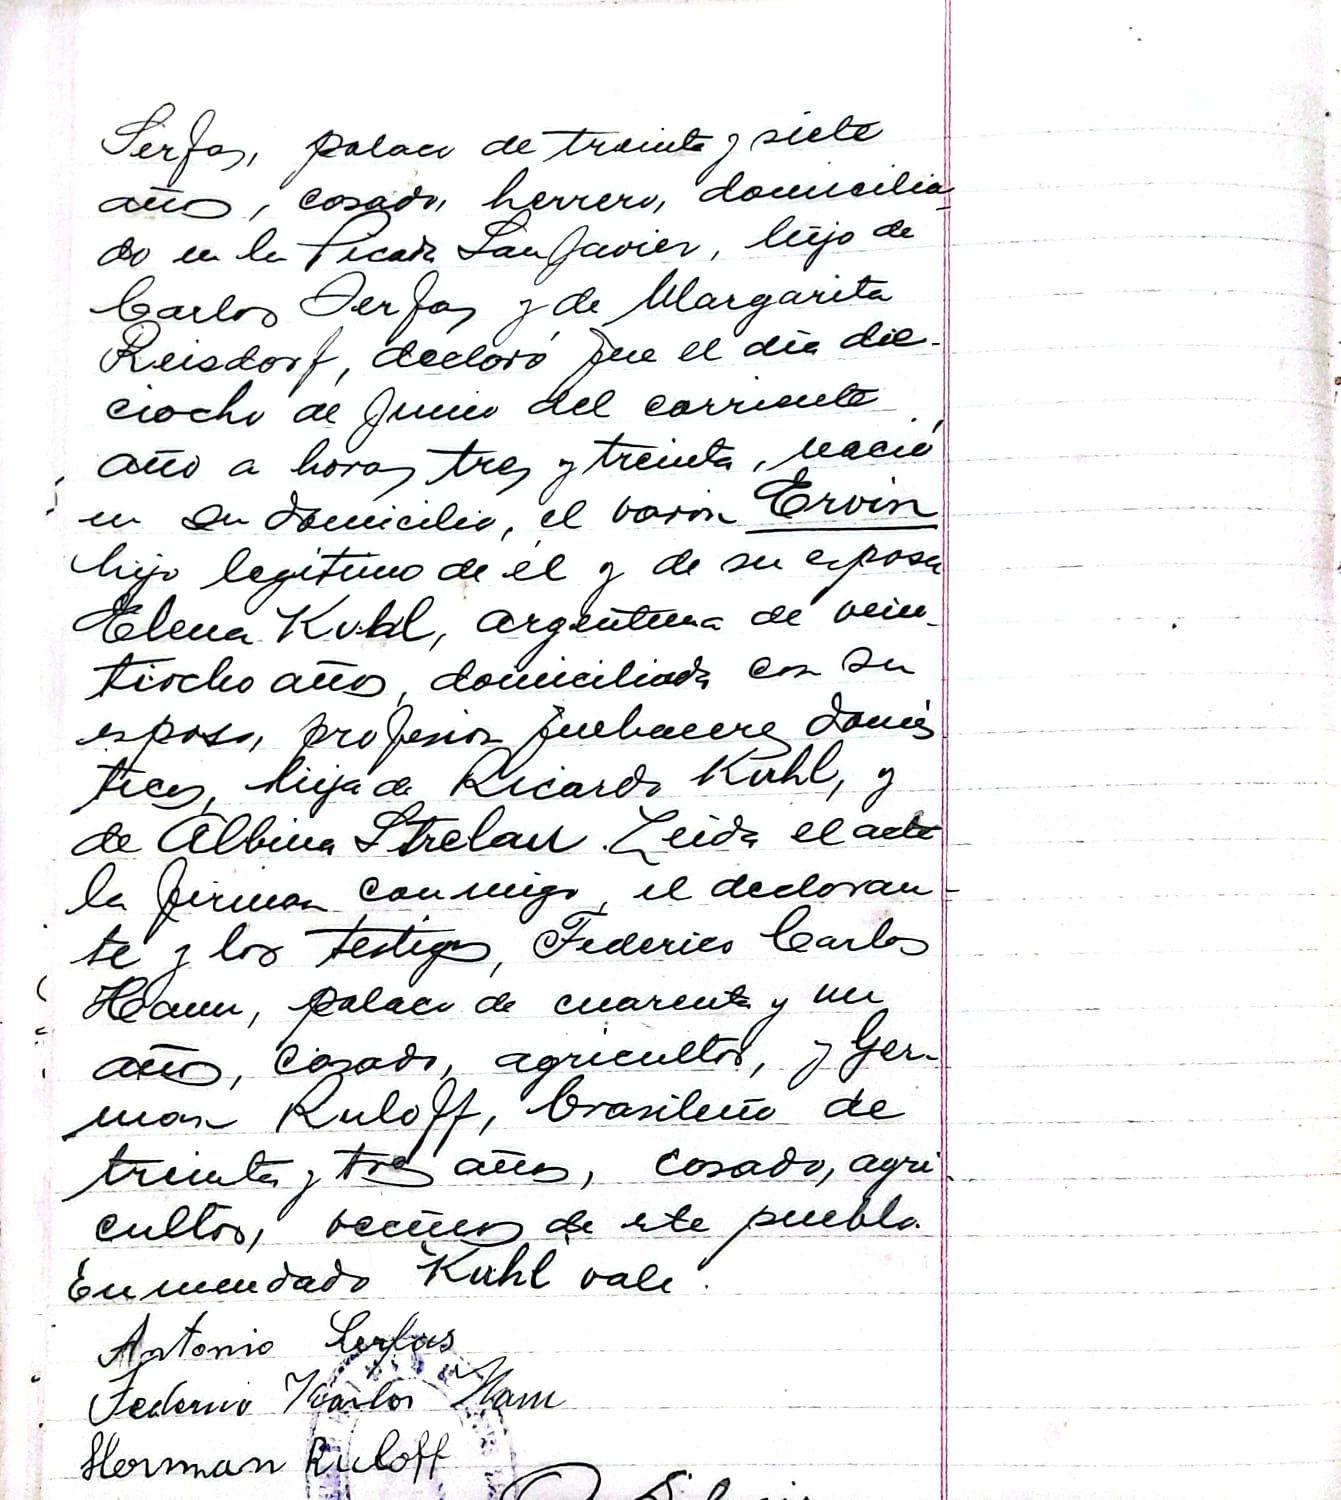 Serfas, polaco de treinta y siete
años, casado, herrero, domicilia-
do en la Picada San Javier, hijo de
Carlos Serfas y de Margarita
Reisdorf, declaró que el día die-
ciocho de Junio del corriente
año a horas tres y treinta, nació
en su domicilio, el varon Ervin
hijo legítimo de él y de su esposa
Elena Kuhl, argentina de vein-
tiocho años, domiciliada con su
esposo, profesion quehaceres domés
ticos, hija de Ricardo Kuhl, y
de Albina Strelau. Leida el acta
la firman conmigo, el declaran-
te y los testigos, Federico Carlos
Hamm, polaco de cuarenta y un
años, casado, agricultor, y Ger-
man Ruloff, brasileño de
treinta y tres años, casado, agri-
cultor, vecinos de este pueblo.
Enmendado Kuhl vale.
Antonio Serfas
Federico Karlos Ham
Herman Ruloff